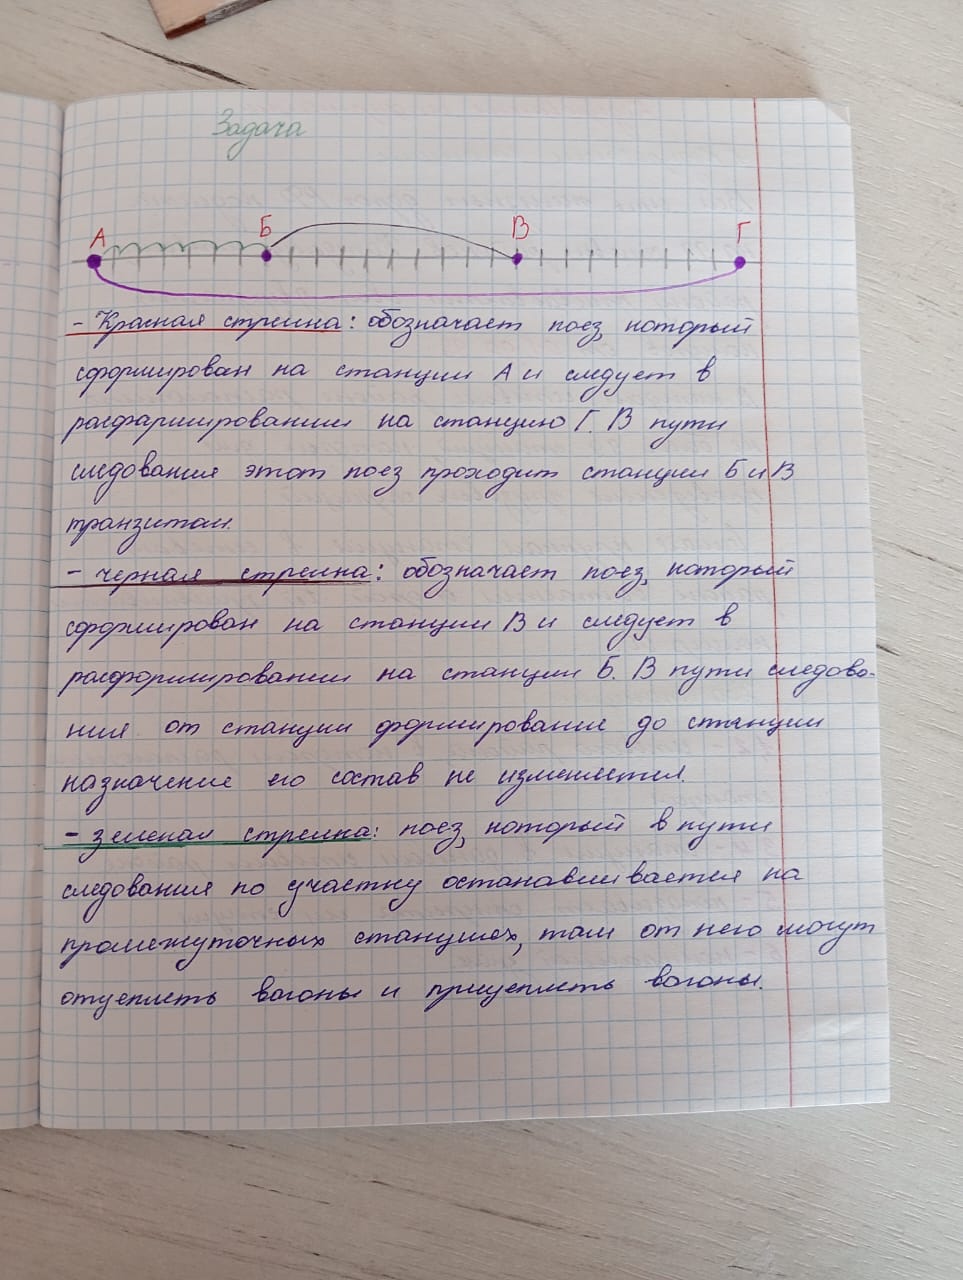 Задача
А Б В Г
- Красная стрелка: обозначает поез, который
сформирован на станции А и следует в
расфармировании на станцию Г. В пути
следования этот поез проходит станции Б и В
транзитом.
- черная стрелка: обозначает поез, который
сформирован на станции В и следует в
расформировании на станции Б. В пути следова-
ния от станции формирование до станции
назначение его состав не изменяется.
- зеленая стрелка: поез, который в пути
следования по участку останавливается на
промежуточных станциях, там от него могут
отцеплять вагоны и прицеплять вагоны.